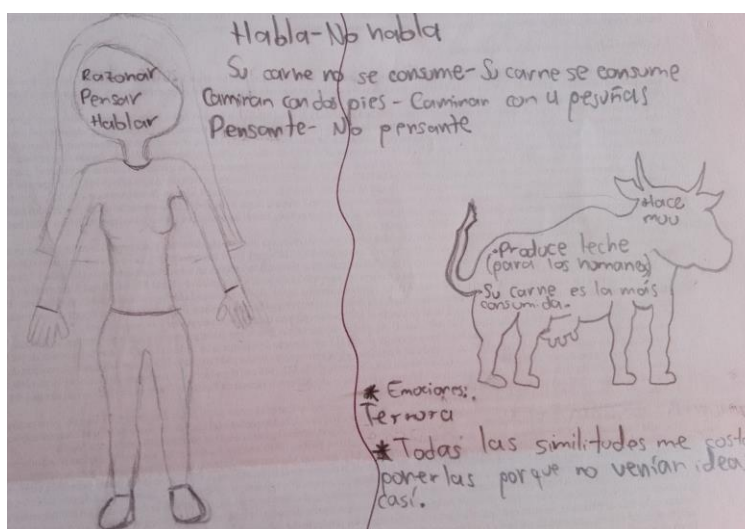 Habla-No habla
Su carne no se consume-Su carne se consume
Caminan con dos pies - Caminan con 4 pesuñas
Pensante- No pensante
Razonar
Pensar
Hablar
Hace
muu
-Produce leche
(para los humanos)
-Su carne es la más
consumida.
* Emociones:
Ternura
* Todas las similitudes me costo
ponerlas porque no venían idea
casí.